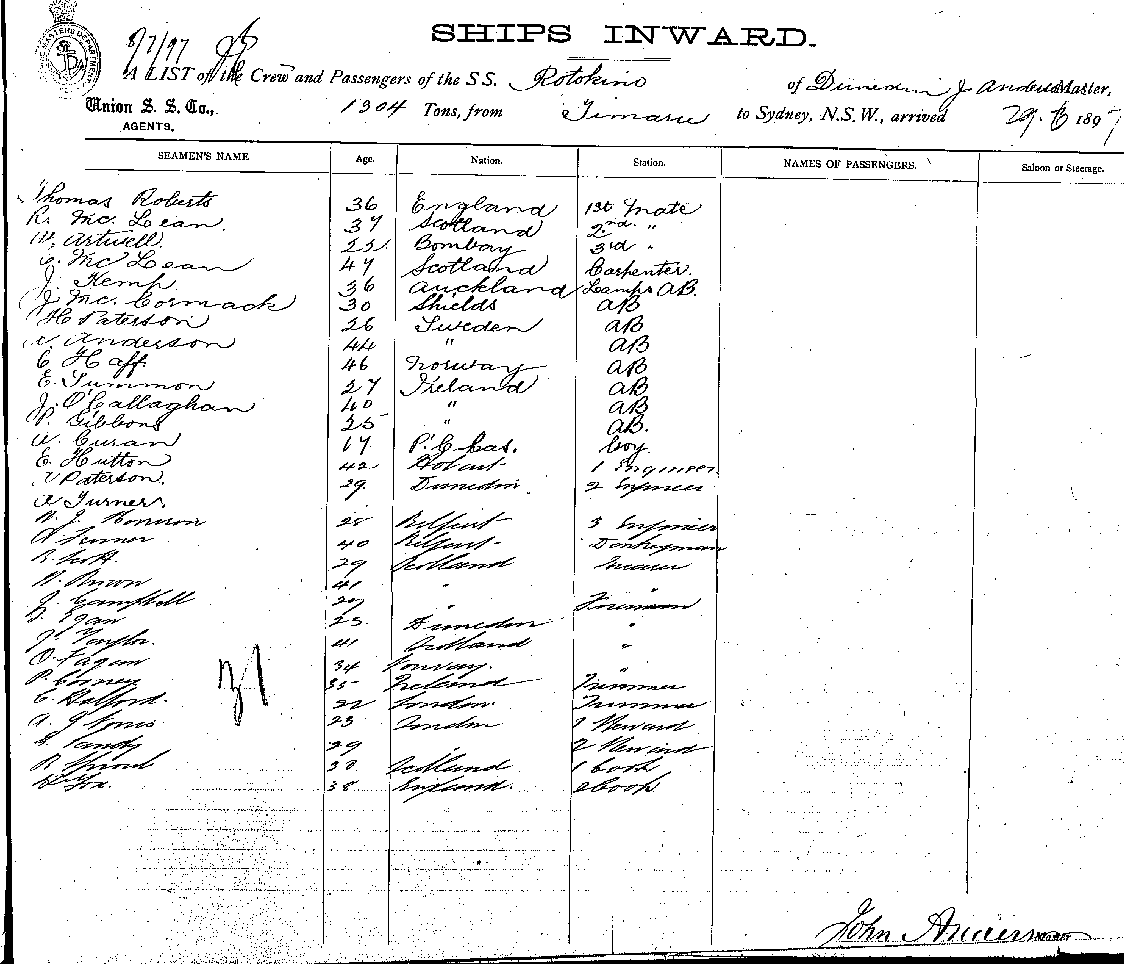 SHIPS INWARD.
8/7/97
A LIST of the Crew and Passengers of the S.S. Rotokino of Dunedin J Anderson Master,
Union S. S. Co., 1304 Tons, from Timaru to Sydney, N.S.W., arrived 29.6 1897
AGENTS.
SEAMEN'S NAME Age. Nation. Station. NAMES OF PASSENGERS. Saloon or Steerage.
Thomas Roberts 36 England 1st Mate
R. Mc. Lean 37 Scotland 2nd "
W. Artwell 25 Bombay 3rd "
C. Mc Lean 47 Scotland Carpenter.
J. Kemp 36 Auckland Lamps AB.
J Mc. Cormack 30 Shields AB
H Paterson 26 Sweden AB
Anderson 44 " AB
C Haff. 46 Norway AB
E. Tummon 27 Ireland AB
J. O'Callaghan 40 " AB
P. Gibbons 25 " AB.
Curan 17 P. Boy
E. Hutton 42 Hobart 1 Engineer
Paterson. 29 Dunedin 2 Engineer
Turner.
28 Belfast 3 Engineer
40 Belfast Donkeyman
R. Scott 29 Scotland
41 "
J. Campbell 29 " Fireman
Egan 25 Dunedin "
J. Taylor 41 Scotland "
O. Fagan 34 Norway. "
P. Corney 35 Ireland Trimmer
C. Halford. 22 London Trimmer
A. J 23 London 1 Steward
29 2 Steward
38 Scotland 1 Cook
Fox. 38 England. 2 Cook
31
John Anderson Master